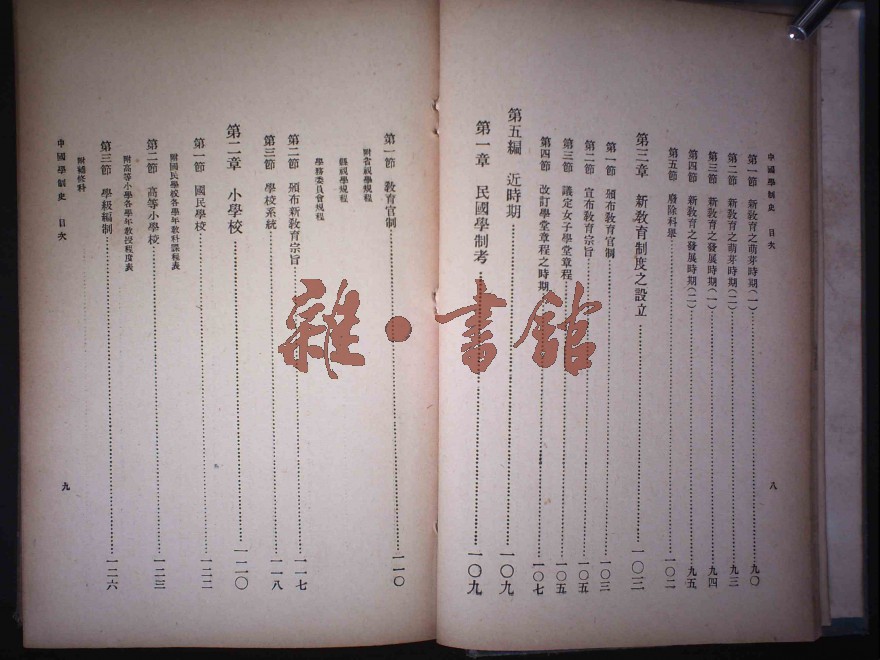 中國學制史 目次
第一節 新教育之萌芽時期(一)……九〇
第二節 新教育之萌芽時期(二)……九三
第三節 新教育之發展時期(一)……九四
第四節 新教育之發展時期(二)……九五
第五節 廢除科舉……一〇二
第三章 新教育制度之設立……一〇三
第一節 頒布教育官制……一〇三
第二節 宣布教育宗旨……一〇五
第三節 議定女子學堂章程……一〇五
第四節 改訂學堂章程之時期……一〇七
第五編 近時期……一〇九
第一章 民國學制考……一〇九
八
第一節 教育官制……一一〇
附省視學規程
縣視學規程
學務委員會規程
第二節 頒布新教育宗旨……一一七
第三節 學校系統……一一八
第二章 小學校……一二〇
第一節 國民學校……一二二
附國民學校各學年教科課程表
第二節 高等小學校……一二三
附高等小學各學年教授程度表
第三節 學級編制……一二六
附補修科
中國學制史 目次
九
雜·書館